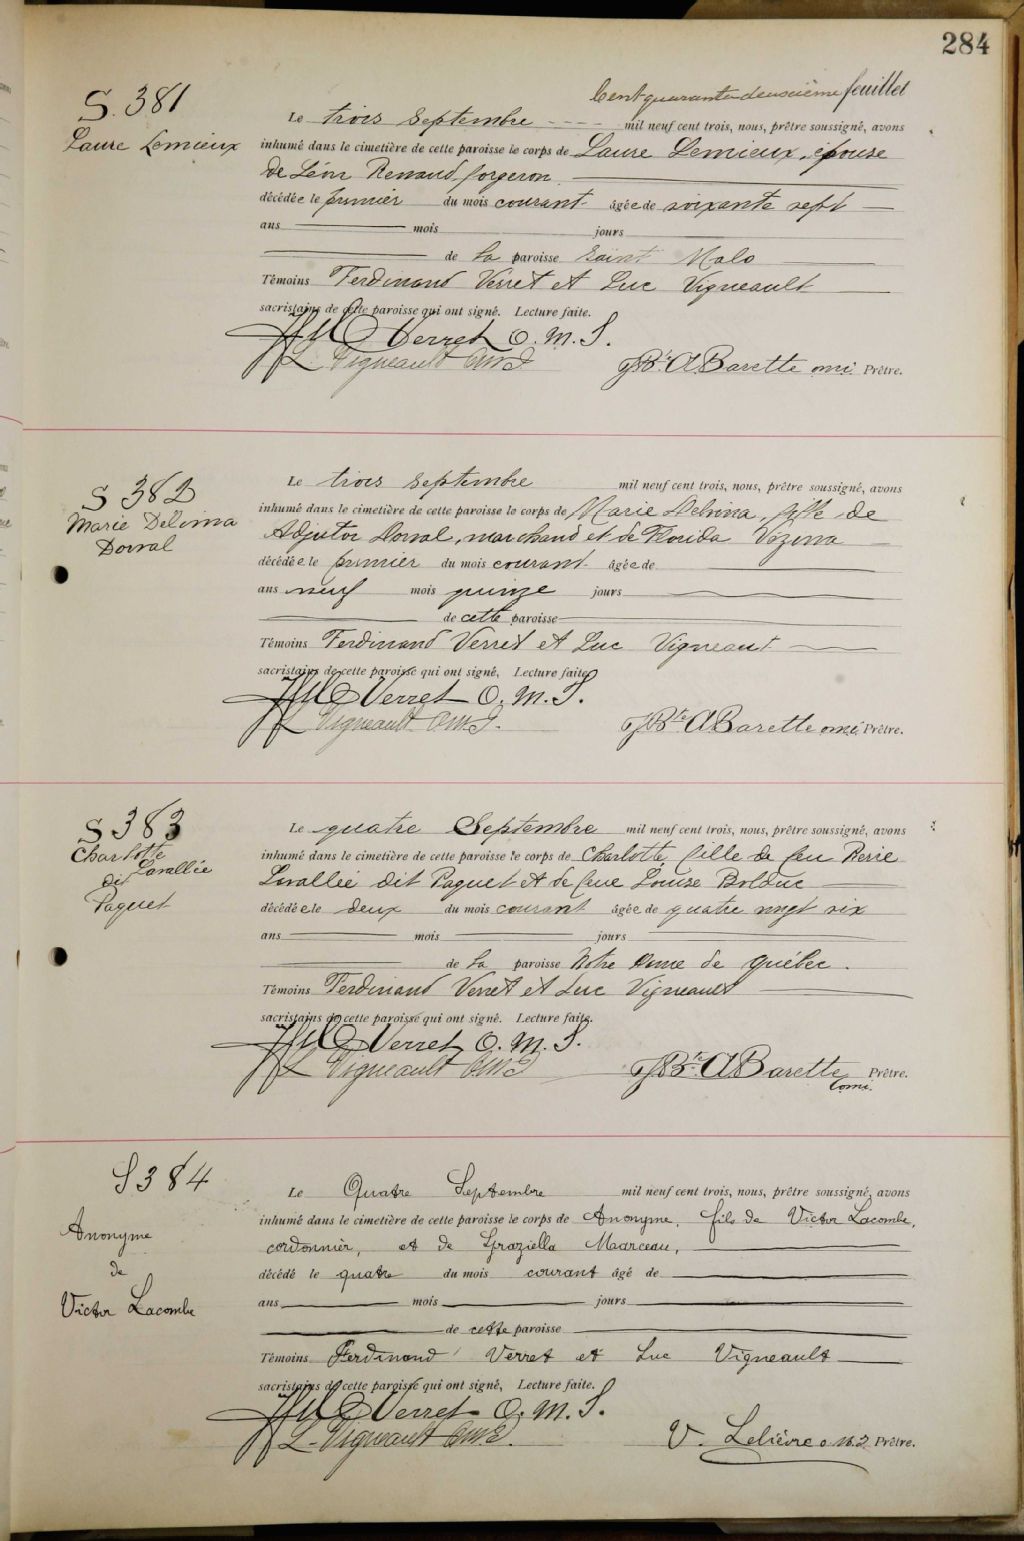 284
Cent quarante deuxième feuillet
S. 381
Laure Lemieux
Le trois Septembre ---- mil neuf cent trois, nous, prêtre soussigné, avons
inhumé dans le cimetière de cette paroisse le corps de Laure Lemieux, épouse
de Léon Renaud, forgeron
décédée le premier du mois courant âgée de soixante sept
ans mois jours
de la paroisse Saint Malo
Témoins Ferdinand Verret et Luc Vigneault
sacristains de cette paroisse qui ont signé. Lecture faite.
Verret O. M. I.
L Vigneault OMI
J Bte A Barette omi Prêtre.
S 382
Marie Delvina
Dorval
Le trois septembre mil neuf cent trois, nous, prêtre soussigné, avons
inhumé dans le cimetière de cette paroisse le corps de Marie Delvina, fille de
Adjutor Dorval, marchand et de Florida Vézina
décédée le premier du mois courant âgée de
ans neuf mois quinze jours
de cette paroisse
Témoins Ferdinand Verret et Luc Vigneault
sacristains de cette paroisse qui ont signé, Lecture faite.
Verret O. M. I.
L Vigneault O.M.I.
J Bte A Barette omi Prêtre.
S 383
Charlotte
Lavallée
dit
Paquet
Le quatre Septembre mil neuf cent trois, nous, prêtre soussigné, avons
inhumé dans le cimetière de cette paroisse le corps de Charlotte, fille de feu Pierre
Lavallée dit Paquet et de feue Louise Bolduc
décédée le deux du mois courant âgée de quatre vingt six
ans mois jours
de la paroisse Notre Dame de Québec.
Témoins Ferdinand Verret et Luc Vigneault
sacristains de cette paroisse qui ont signé. Lecture faite.
Verret O. M. I.
L Vigneault OMI
J Bte A Barette Prêtre.
omi.
S 384
Anonyme
de
Victor Lacombe
Le Quatre Septembre mil neuf cent trois, nous, prêtre soussigné, avons
inhumé dans le cimetière de cette paroisse le corps de Anonyme, fils de Victor Lacombe,
cordonnier, et de Graziella Maarceau,
décédé le quatre du mois courant âgé de
ans mois jours
de cette paroisse
Témoins Ferdinand Verret et Luc Vigneault
sacristains de cette paroisse qui ont signé, Lecture faite.
Verret O. M. I.
L. Vigneault OMI.
V. Lelièvre o.m.i. Prêtre.